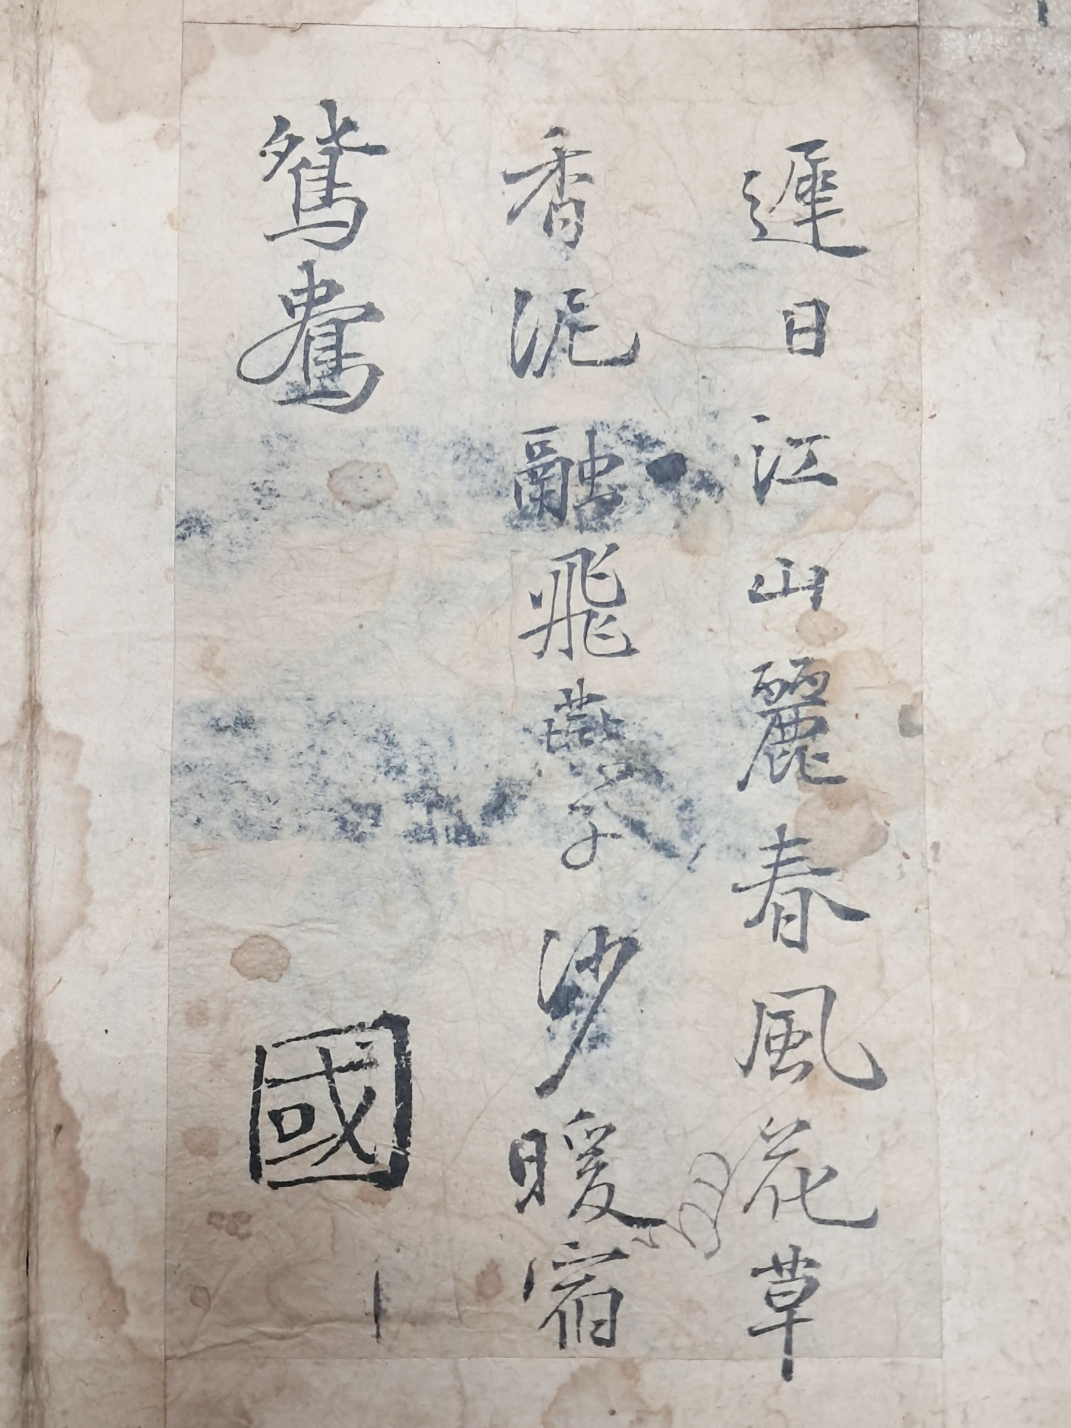 遲日江山麗春風花草
香泥融飛燕子沙暖宿
鴛鴦 國